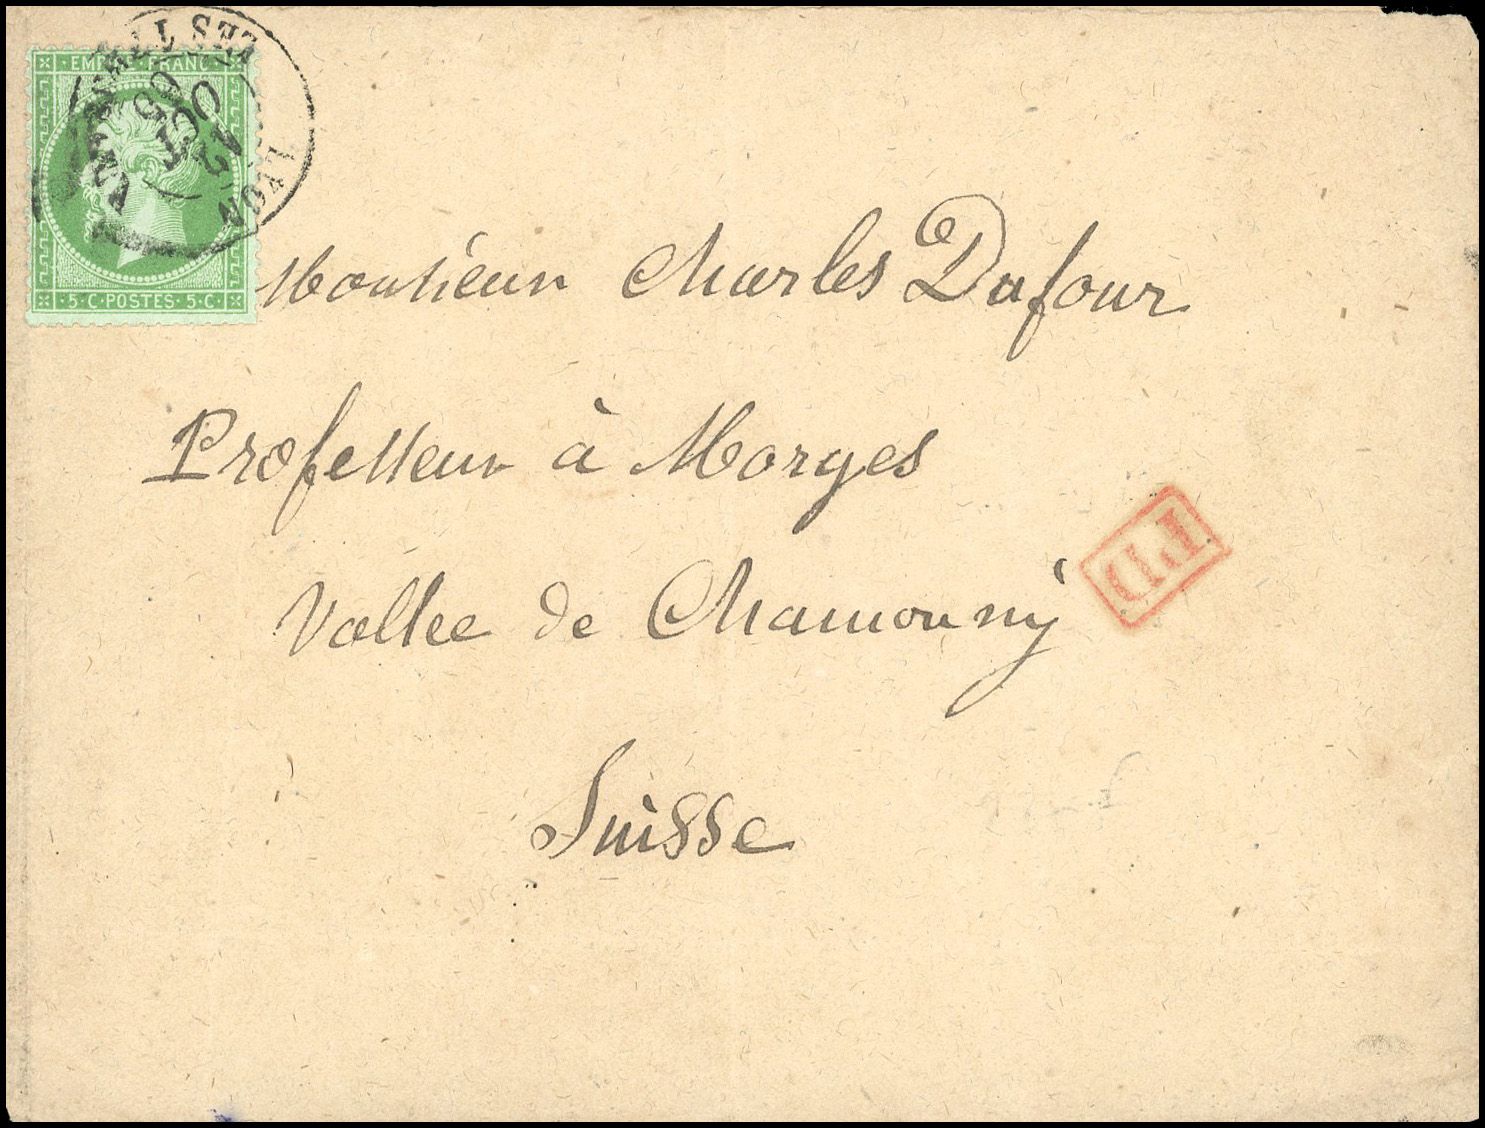 EMPIRE FRANC
5 · C · POSTES · 5 · C
LYON LES TERREAUX
OCT
65
Monsieur Charles Dufour
Professeur à Morges
Vallee de Chamouny
Suisse
PD